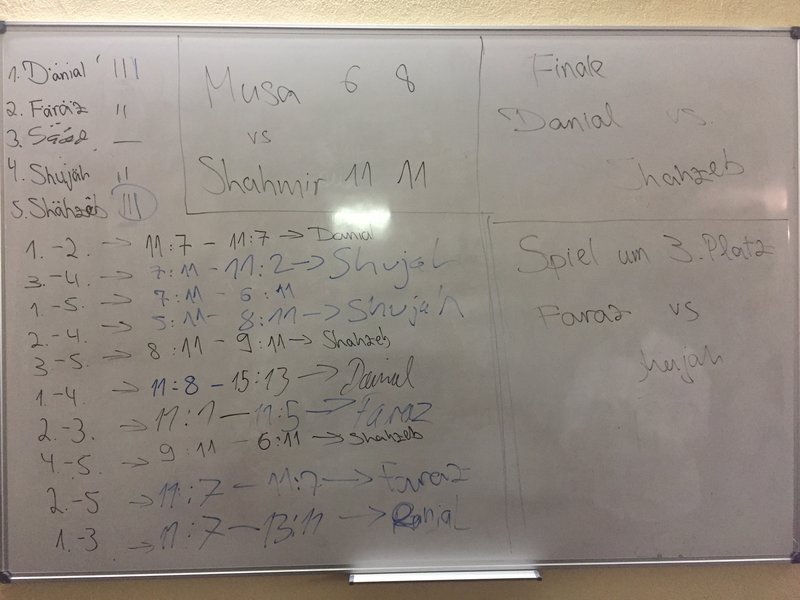 1. Danial III
2. Faraz II
3. Saad —
4. Shujah II
5. Shahzeb III
Musa 6 8
vs
Shahmir 11 11
Finale
Danial vs.
Shahzeb
Spiel um 3. Platz
Faraz vs
Shujah
1. - 2. → 11:7 - 11:7 → Danial
3. - 4. → 7:11 - 11:2 → Shujah
1. - 5. → 7:11 - 6:11
2. - 4. → 5:11 - 8:11 → Shujah
3 - 5. → 8:11 - 9:11 → Shahzeb
1. - 4. → 11:8 - 15:13 → Danial
2. - 3. → 11:1 - 11:5 → Faraz
4. - 5. → 9:11 - 6:11 → Shahzeb
2. - 5 → 11:7 - 11:7 → Faraz
1. - 3 → 11:7 - 13:11 → Danial